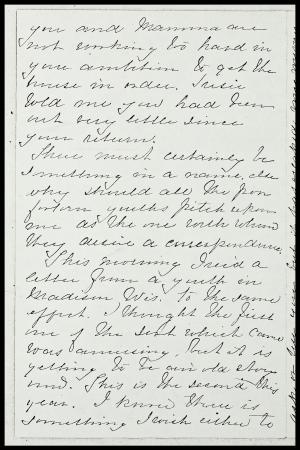 you and Mamma are
not working too hard in
your ambition to get the
house in order. Susie
told me you had been
out very little since
your return.
There must certainly be
something in a name, else
why should all the poor
forlorn youths pitch upon
me as the one with whom
they desire a correspondence.
This morning I rec'd a
letter from a youth in
Madison Wis. to the same
effect. I thought the first
one of the sort which came
was amusing, but it is
getting to be an old story
now. This is the second this
year. I know there is
something I wish either to